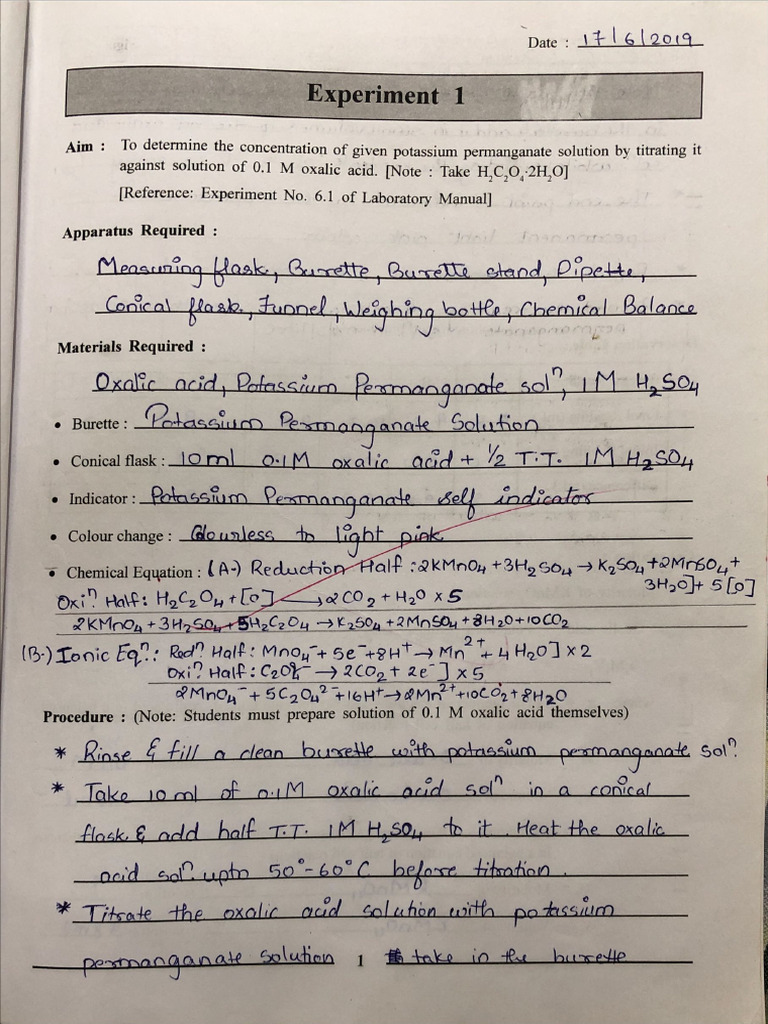 Date : 17/6/2019
Experiment 1
Aim : To determine the concentration of given potassium permanganate solution by titrating it
against solution of 0.1 M oxalic acid. [Note : Take H₂C₂O₄·2H₂O]
[Reference: Experiment No. 6.1 of Laboratory Manual]
Apparatus Required :
Measuring flask, Burette, Burette stand, Pipette,
Conical flask, Funnel, Weighing bottle, Chemical Balance
Materials Required :
Oxalic acid, Potassium Permanganate solⁿ, 1M H₂SO₄
• Burette : Potassium Permanganate Solution
• Conical flask : 10ml 0.1M oxalic acid + ½ T.T. 1M H₂SO₄
• Indicator : Potassium Permanganate self indicator
• Colour change : Colourless to light pink
• Chemical Equation : (A.) Reduction Half : 2KMnO₄ + 3H₂SO₄ → K₂SO₄ + 2MnSO₄ +
3H₂O] + 5[O]
Oxiⁿ Half : H₂C₂O₄ + [O] → 2CO₂ + H₂O x 5
2KMnO₄ + 3H₂SO₄ + 5H₂C₂O₄ → K₂SO₄ + 2MnSO₄ + 8H₂O + 10CO₂
(B.) Ionic Eqⁿ.: Redⁿ Half : MnO₄⁻ + 5e⁻ + 8H⁺ → Mn²⁺ + 4H₂O] x 2
Oxiⁿ Half : C₂O₄²⁻ → 2CO₂ + 2e⁻] x 5
2MnO₄⁻ + 5C₂O₄²⁻ + 16H⁺ → 2Mn²⁺ + 10CO₂ + 8H₂O
Procedure : (Note: Students must prepare solution of 0.1 M oxalic acid themselves)
* Rinse & fill a clean burette with potassium permanganate solⁿ.
* Take 10 ml of 0.1M oxalic acid solⁿ in a conical
flask & add half T.T. 1M H₂SO₄ to it. Heat the oxalic
acid solⁿ. upto 50°-60°C before titration.
* Titrate the oxalic acid solution with potassium
permanganate solution take in the burette
1